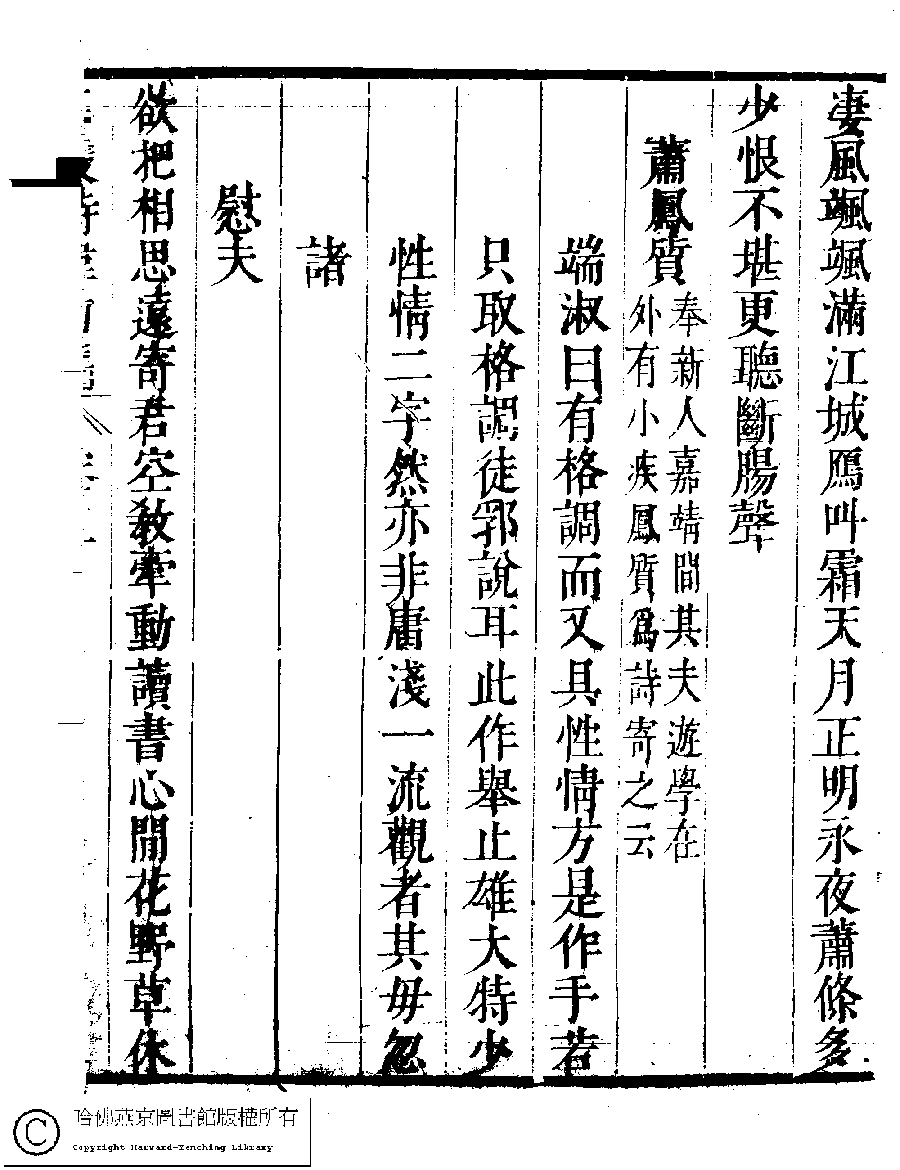 凄風颯颯滿江城鴈叫霜天月正明永夜蕭條多
少恨不堪更聽斷腸聲
蕭鳳質
奉新人嘉靖間其夫遊學在
外有小疾鳳質爲詩寄之云
端淑曰有格調而又具性情方是作手若
只取格調徒郛說耳此作舉止雄大特少
性情二字然亦非庸淺一流觀者其毋忽
諸
慰夫
欲把相思遠寄君空敎牽動讀書心閒花野草休
哈佛燕京圖書館版權所有
Copyright Harvard-Yenching Library